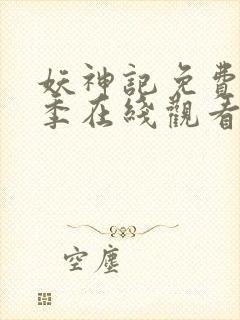 妖神記免費
季在綫觀看
空塵